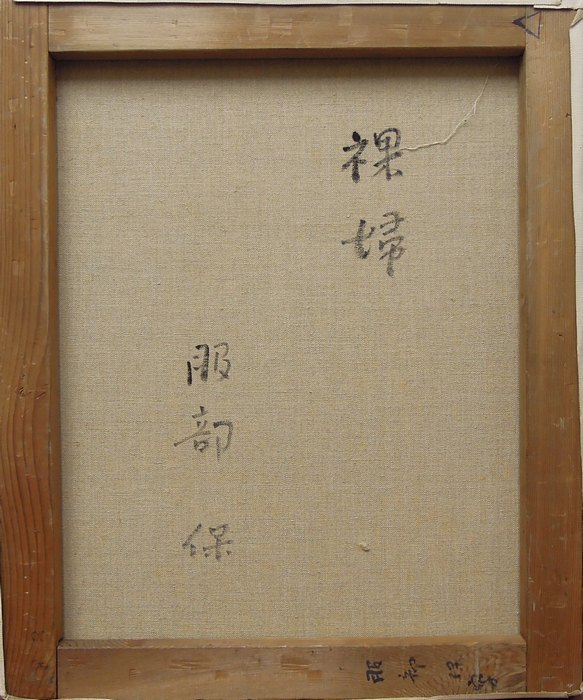 裸婦
服部 保
服部保